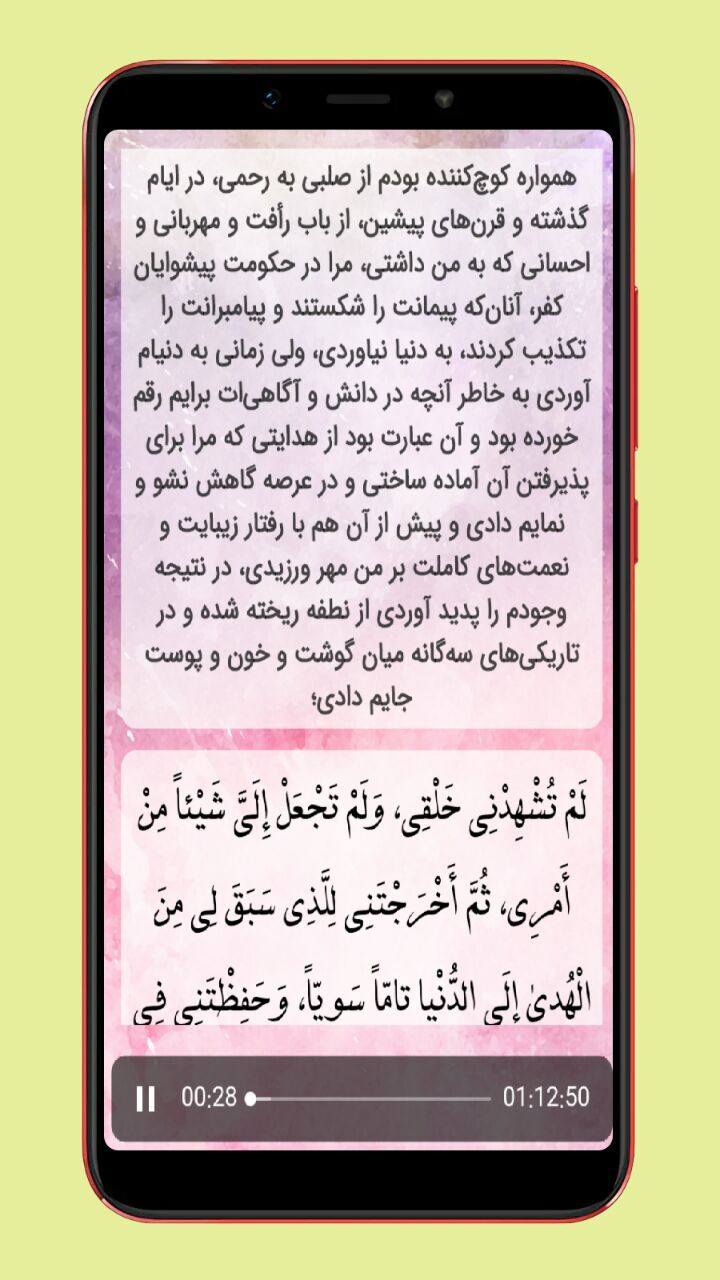 همواره کوچ‌کننده بودم از صلبی به رحمی، در ایام
گذشته و قرن‌های پیشین، از باب رأفت و مهربانی و
احسانی که به من داشتی، مرا در حکومت پیشوایان
کفر، آنان‌که پیمانت را شکستند و پیامبرانت را
تکذیب کردند، به دنیا نیاوردی، ولی زمانی به دنیام
آوردی به خاطر آنچه در دانش و آگاهی‌ات برایم رقم
خورده بود و آن عبارت بود از هدایتی که مرا برای
پذیرفتن آن آماده ساختی و در عرصه گاهش نشو و
نمایم دادی و پیش از آن هم با رفتار زیبایت و
نعمت‌های کاملت بر من مهر ورزیدی، در نتیجه
وجودم را پدید آوردی از نطفه ریخته شده و در
تاریکی‌های سه‌گانه میان گوشت و خون و پوست
جایم دادی؛
لَمْ تُشْهِدْنِی خَلْقِی، وَلَمْ تَجْعَلْ إِلَیَّ شَیْئاً مِنْ
أَمْرِی، ثُمَّ أَخْرَجْتَنِی لِلَّذِی سَبَقَ لِی مِنَ
الْهُدىٰ إِلَى الدُّنْیا تامّاً سَوِیّاً، وَحَفِظْتَنِی فِی
00:28 01:12:50